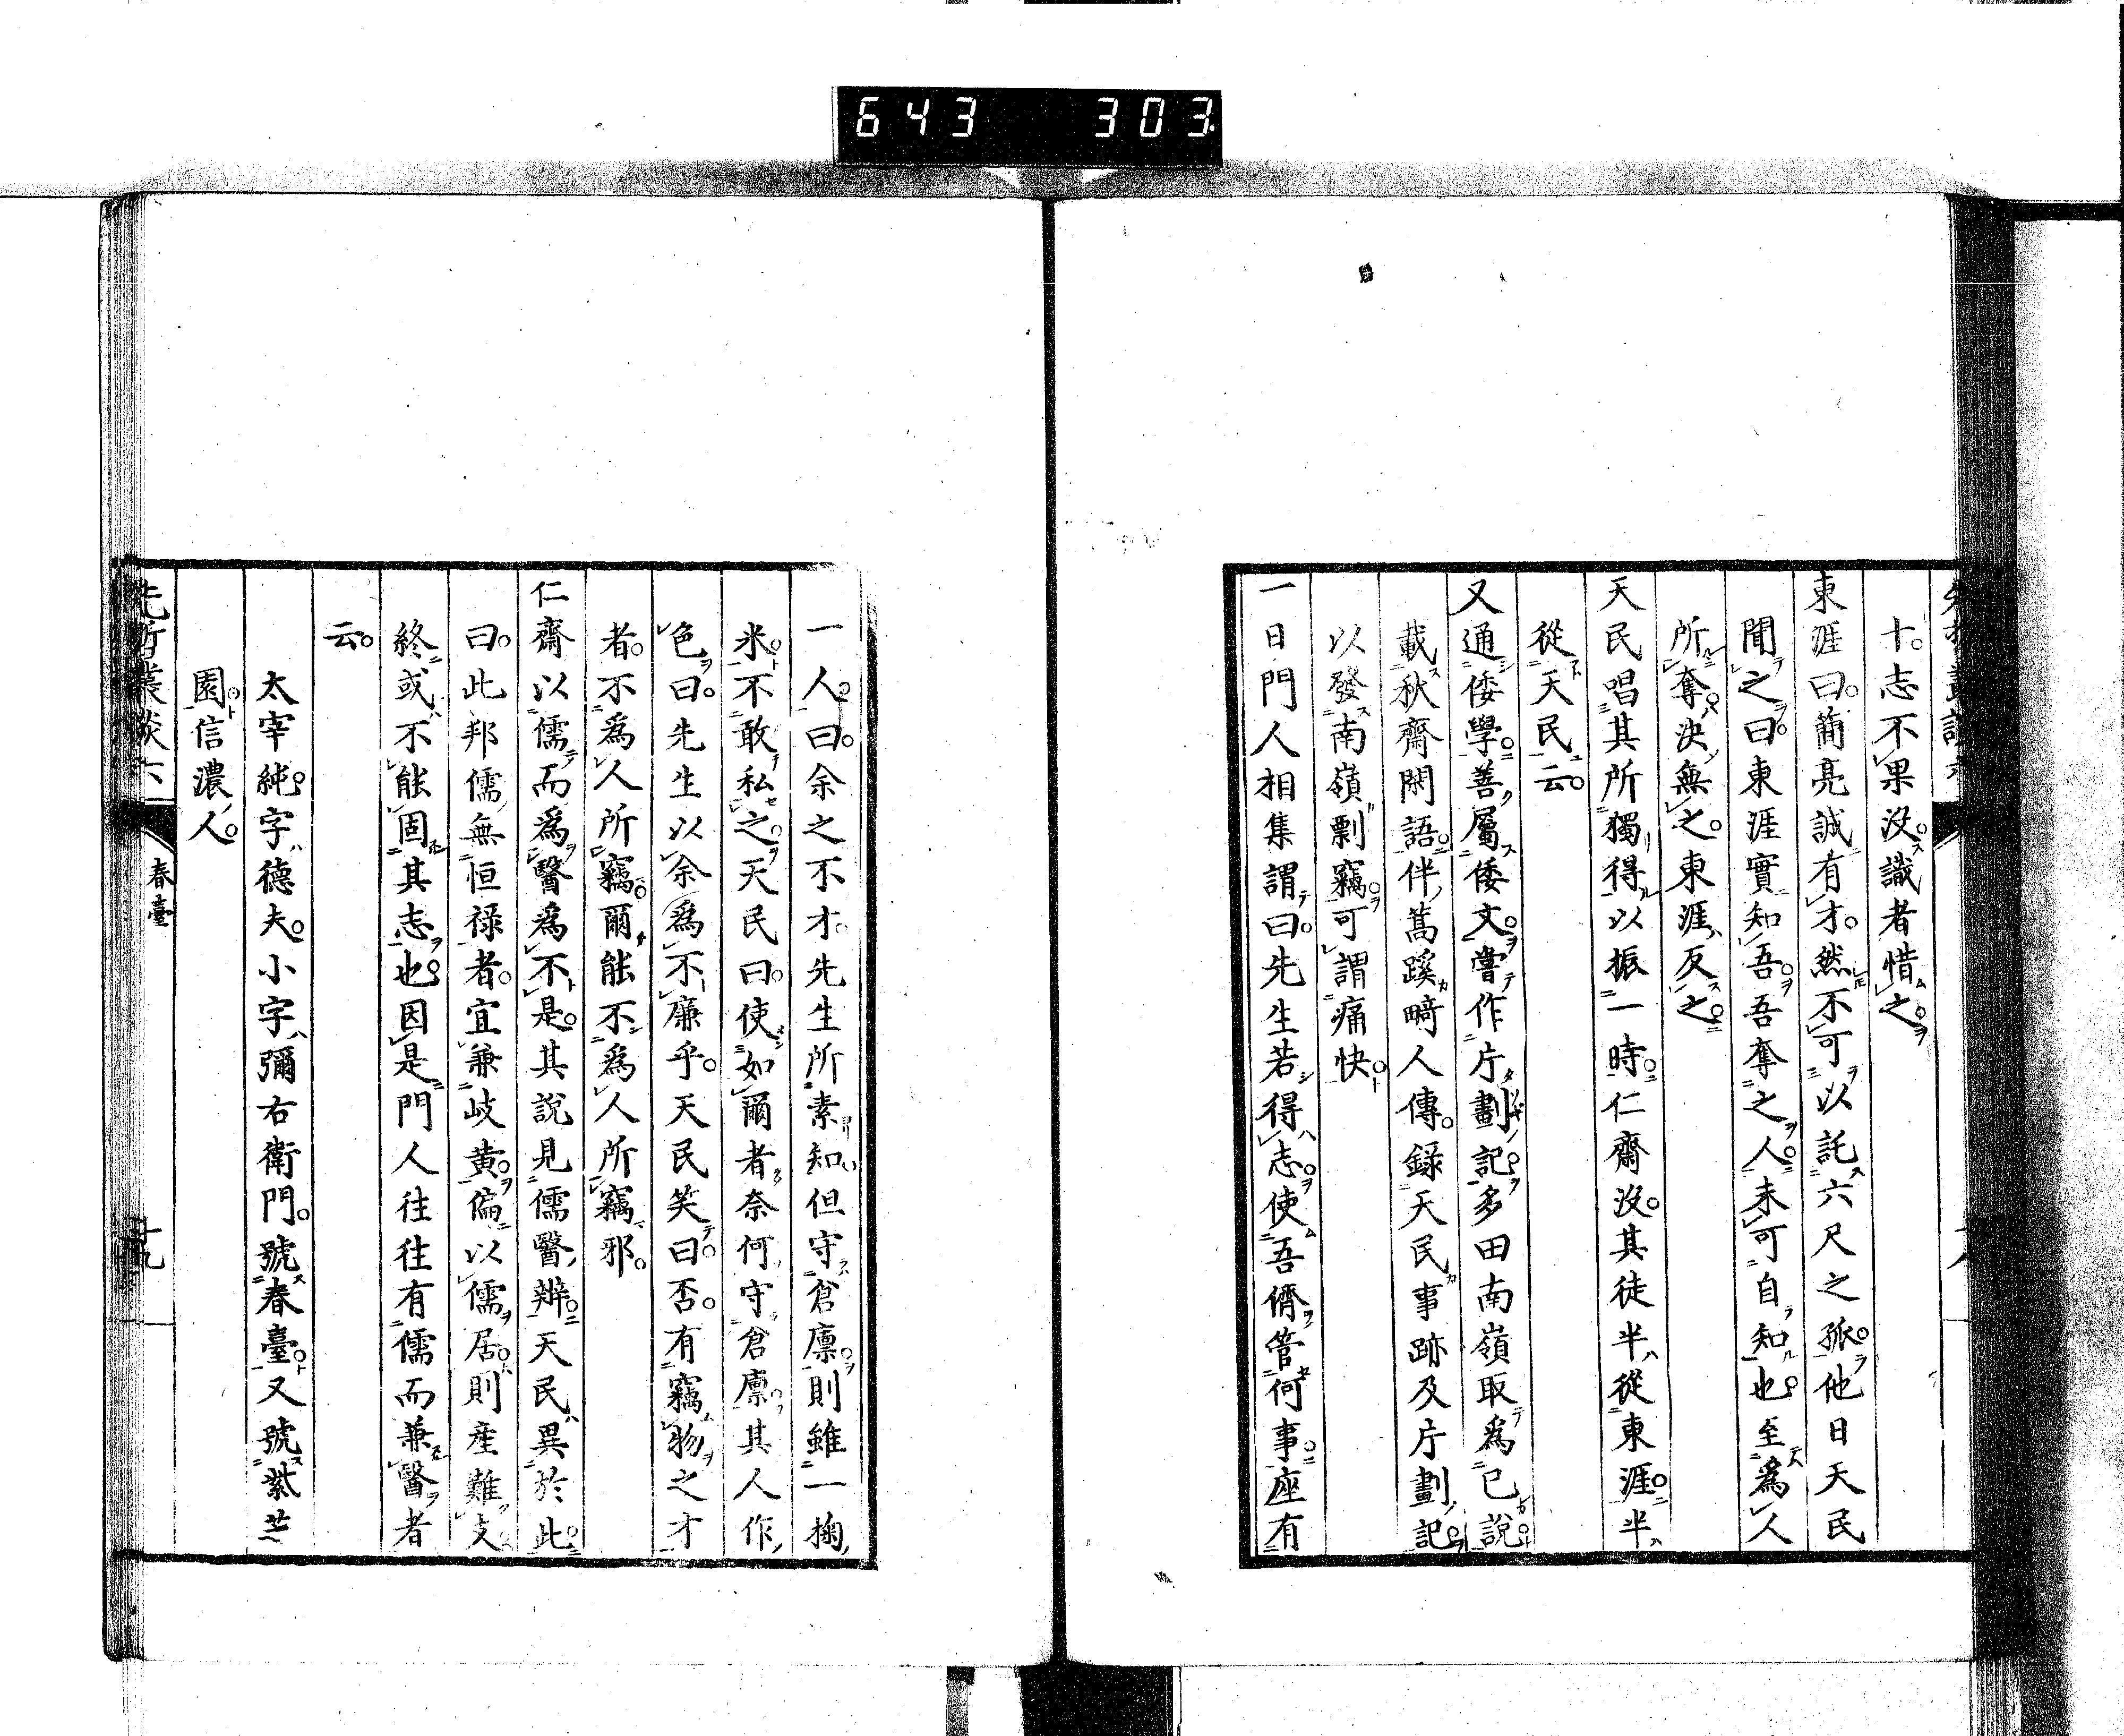 643 303
十。志不果沒。識者惜之。
東涯曰。簡亮誠有才。然不可以託六尺之孤。他日天民
聞之曰。東涯實知吾。吾奪之人。未可自知也。至為人
所奪。決無之。東涯反之。
天民唱其所獨得以振一時。仁齋沒。其徒半從東涯。半
從天民云。
又通倭學。善屬倭文。嘗作片劃記。多田南嶺取為己說。
載秋齋閑語。伴蒿蹊畸人傳。錄天民事跡及片劃記。
以發南嶺剽竊。可謂痛快。
一日門人相集謂曰。先生若得志。使吾儕管何事。座有
一人。曰。余之不才。先生所素知。但守倉廩。則雖一掬
米。不敢私之。天民曰。使如爾者奈何守倉廩。其人作
色曰。先生以余為不廉乎。天民笑曰。否。有竊物之才
者。不為人所竊。爾能不為人所竊邪。
仁齋以儒而為醫為不是。其說見儒醫辨。天民異於此。
曰。此邦儒無恒祿者。宜兼岐黃。偏以儒居。則產難支。
終或不能固其志也。因是門人往往有儒而兼醫者
云。
太宰純。字德夫。小字彌右衛門。號春臺。又號紫芝
園。信濃人。
先哲叢談六
春臺
十九